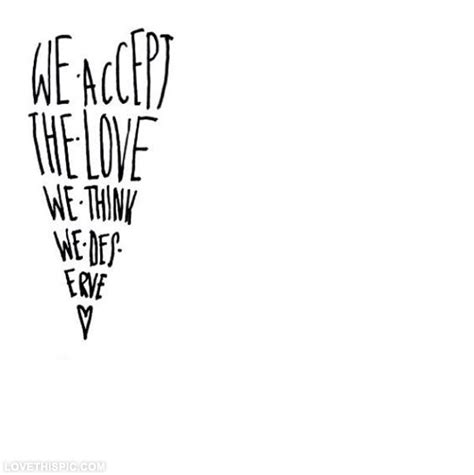 WE·ACCEPT
THE·LOVE
WE·THINK
WE·DES-
ERVE
LOVETHISPIC.COM